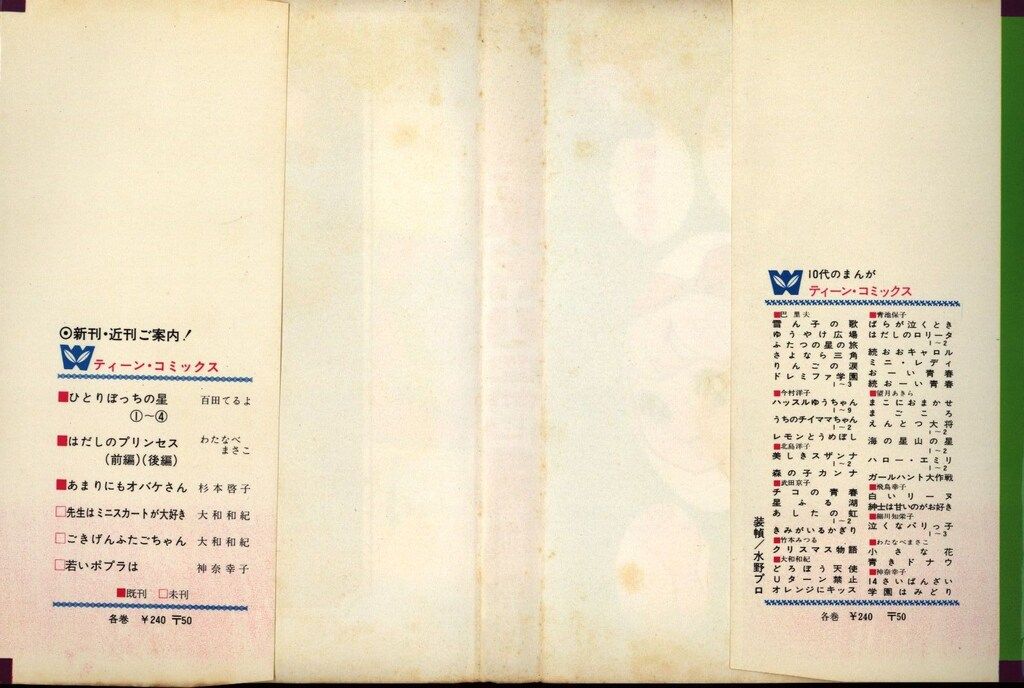 ⊙新刊・近刊ご案内!
ティーン・コミックス
■ひとりぼっちの星 百田てるよ
①〜④
■はだしのプリンセス わたなべまさこ
(前編)(後編)
■あまりにもオバケさん 杉本啓子
□先生はミニスカートが大好き 大和和紀
□ごきげんふたごちゃん 大和和紀
□若いポプラは 神奈幸子
■既刊 □未刊
各巻 ¥240 〒50
10代のまんが
ティーン・コミックス
■巴里夫
雪ん子の歌
ゆうやけ広場
ふたつの星の旅
さよなら三角
りんごの涙
ドレミファ学園
1〜3
■今村洋子
ハッスルゆうちゃん
1〜9
うちのチイママちゃん
1〜2
レモンとうめぼし
■北島洋子
美しきスザンナ
1〜2
森の子カンナ
■武田京子
チコの青春
星ふる湖
あしたの虹
1〜2
きみがいるかぎり
■竹本みつる
クリスマス物語
■大和和紀
どろぼう天使
Uターン禁止
オレンジにキッス
■青池保子
ばらが泣くとき
はだしのロリータ
1〜2
続おおキャロル
ミニ・レディ
おーい青春
続おーい青春
■望月あきら
まこにおまかせ
まごころ
えんとつ大将
1〜2
海の星山の星
1〜2
ハロー・エミリ
1〜2
ガールハント大作戦
■飛鳥幸子
白いリーヌ
紳士は甘いのがお好き
■細川知栄子
泣くなパリっ子
1〜3
■わたなべまさこ
小さな花
青きドナウ
■神奈幸子
14さいばんざい
学園はみどり
各巻 ¥240 〒50
装幀/水野プロ